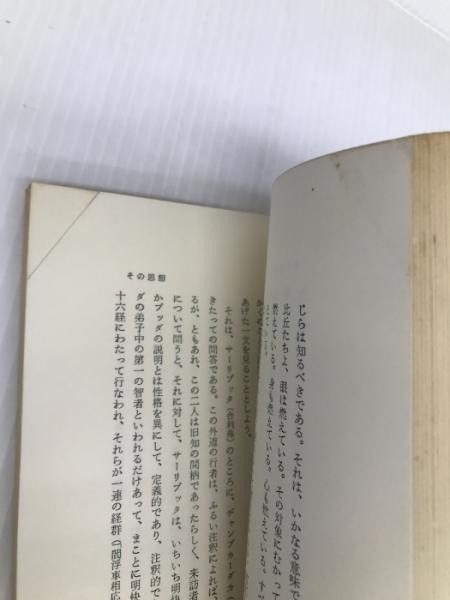 じらは知るべきである。それは、いかなる意味で
比丘たちよ、眼は燃えている。その対象にむかって
燃えている。身も燃えている。心も燃えている。
その思想
あげた一文を見ることとしよう。
それは、サーリプッタ(舎利弗)のところに、ヂャンブカーダカ
きたっての問答である。この外道の行者は、ふるい注釈によれば、
るが、ともあれ、この二人は旧知の間柄であったらしく、来訪者
について問うと、それに対して、サーリプッタは、いちいち明快
かブッダの説明とは性格を異にして、定義的であり、注釈的で
ダの弟子中の第一の智者といわれるだけあって、まことに明快
十六経にわたって行なわれ、それらが一連の経群(「閻浮車相応